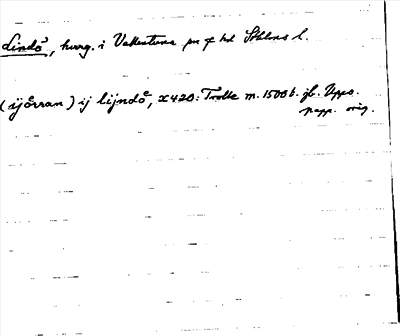 Lindö, herrg. i Vallentuna sn o hd Sthlms l.
(ijörran) ij lijndöe, X420: Trolle m. 1500 b. jb. Upps.
papp. orig.